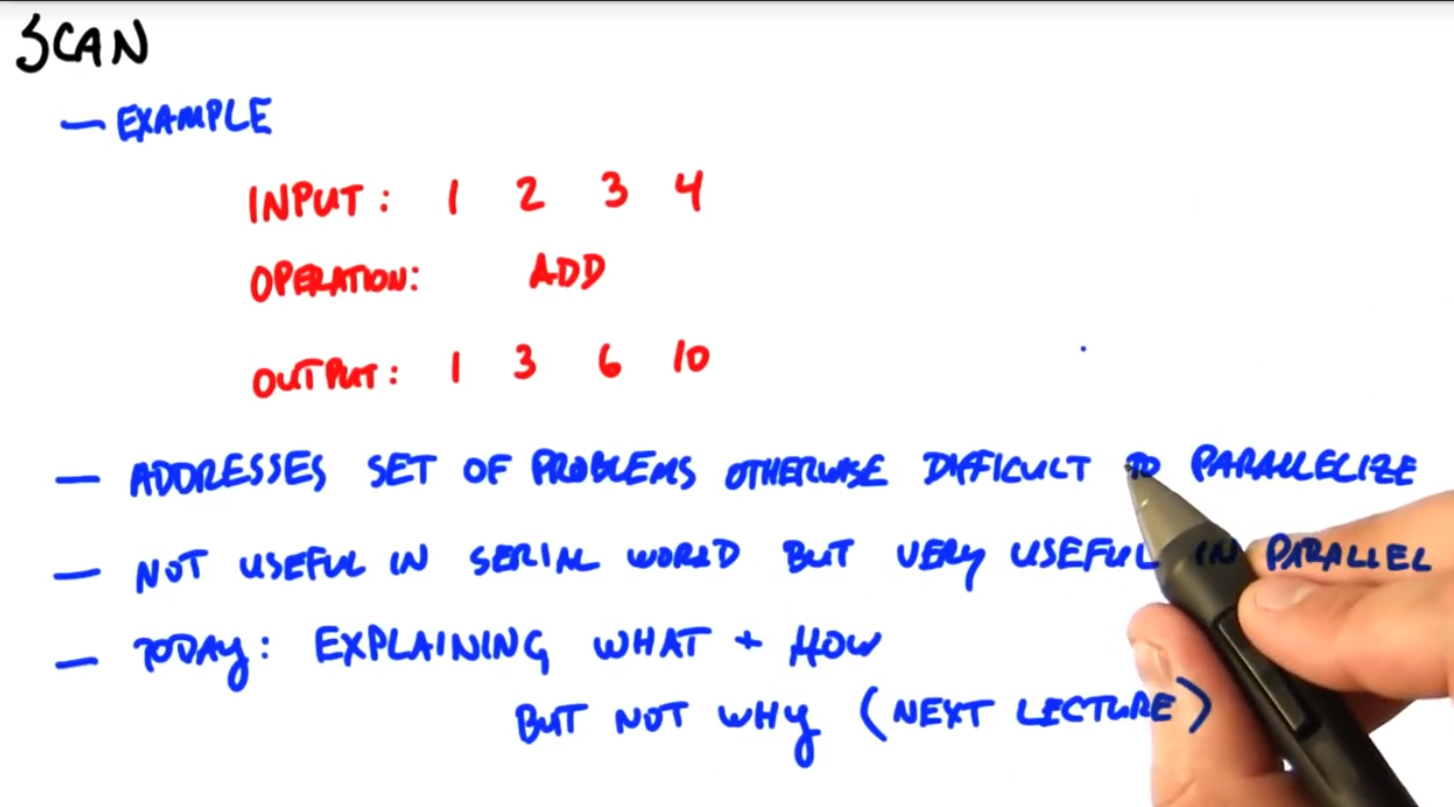 SCAN
— EXAMPLE
INPUT: 1 2 3 4
OPERATION: ADD
OUTPUT: 1 3 6 10
— ADDRESSES SET OF PROBLEMS OTHERWISE DIFFICULT TO PARALLELIZE
— NOT USEFUL IN SERIAL WORLD BUT VERY USEFUL IN PARALLEL
— TODAY: EXPLAINING WHAT + HOW
BUT NOT WHY (NEXT LECTURE)